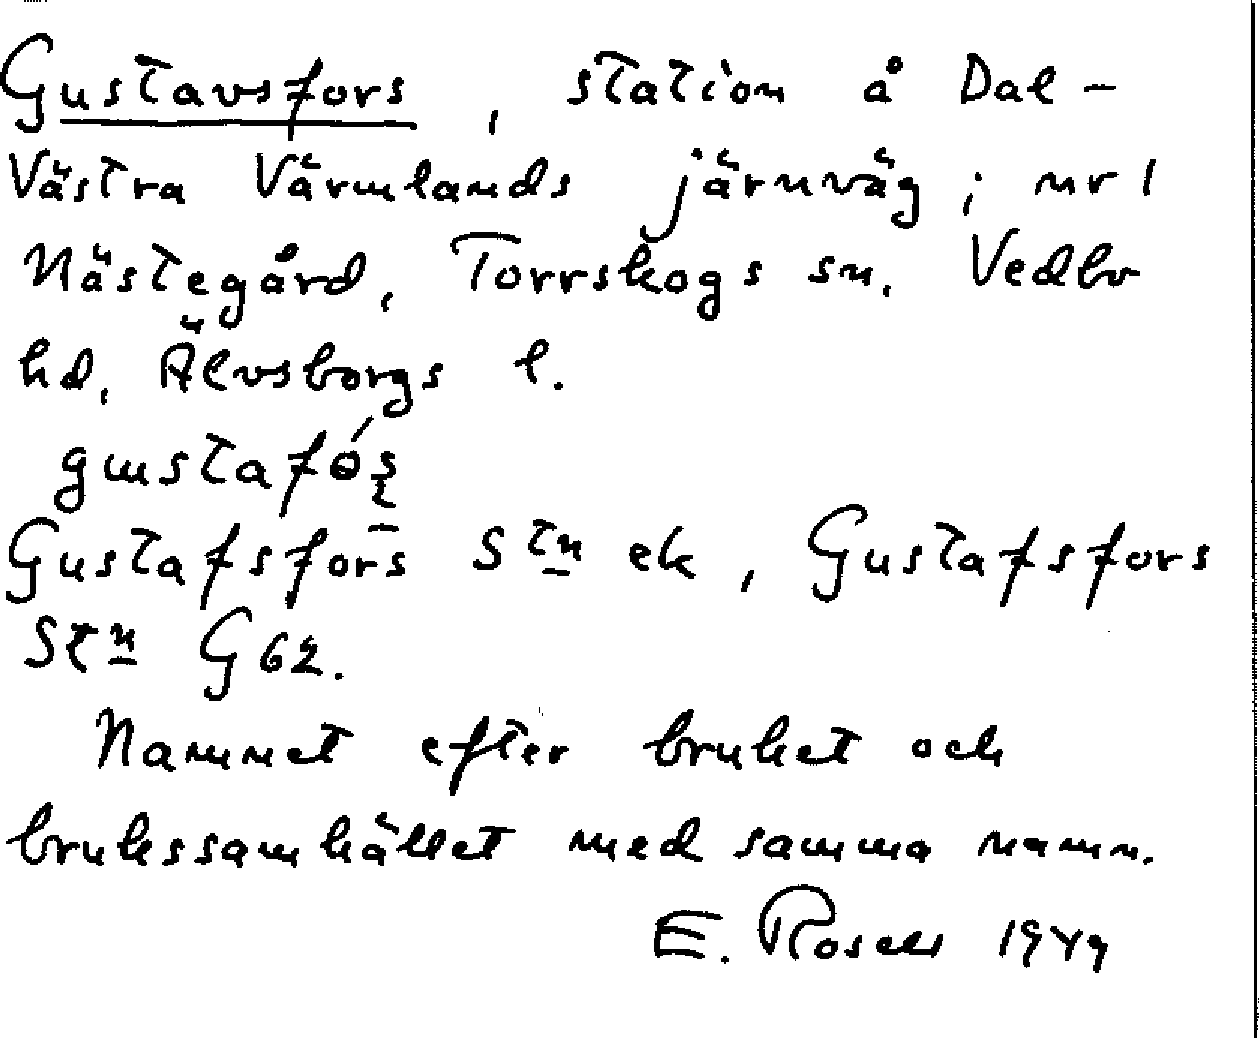 Gustavsfors, station å Dal-
Västra Värmlands järnväg; nr 1
Nästegård, Torrskogs sn, Vedbo
hd, Älvsborgs l.
gustafós̨
Gustafsfors Stn ek, Gustafsfors
Stn G 62.
Namnet efter bruket och
brukssamhället med samma namn.
E. Rosell 1949